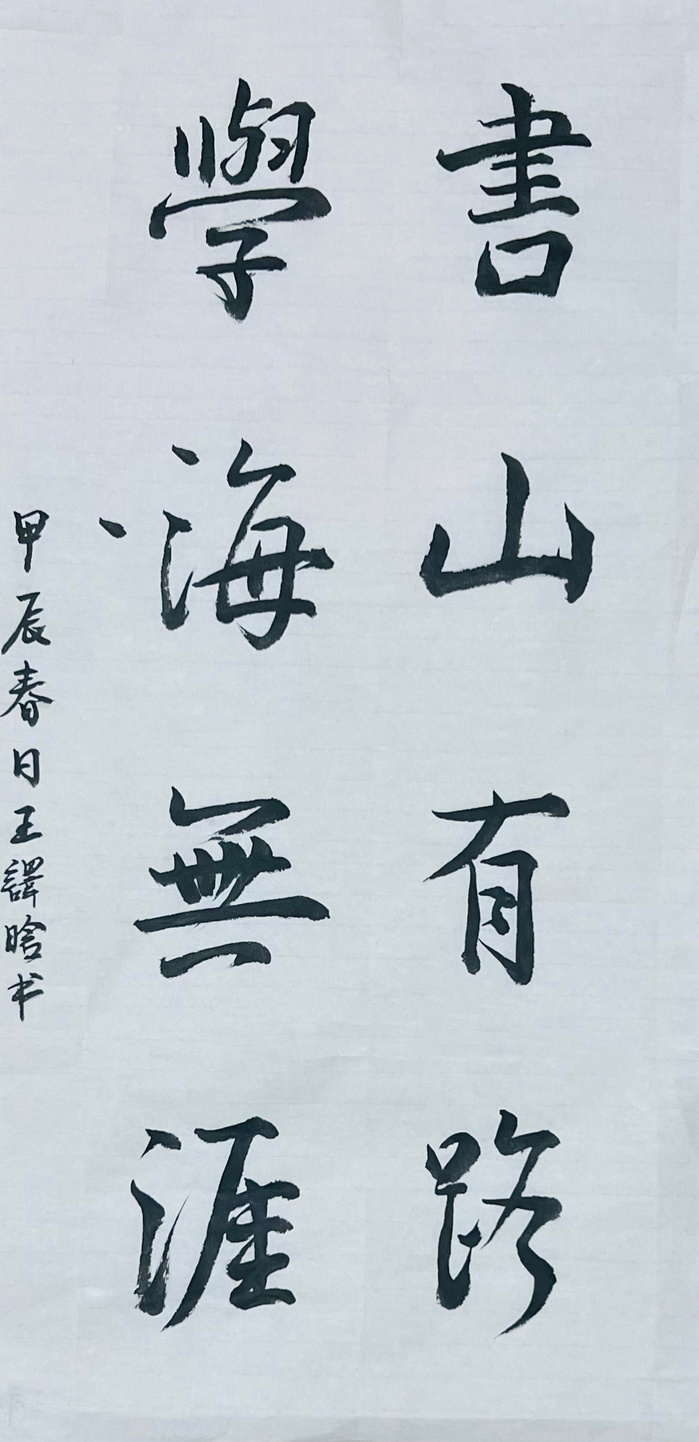 書山有路
學海無涯
甲辰春日王譯晗书